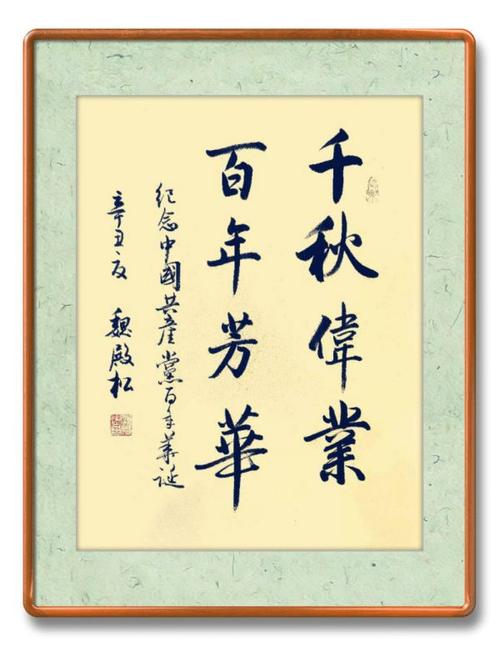 千秋偉業
百年芳華
紀念中國共產黨百年華誕
辛丑夏 魏殿松